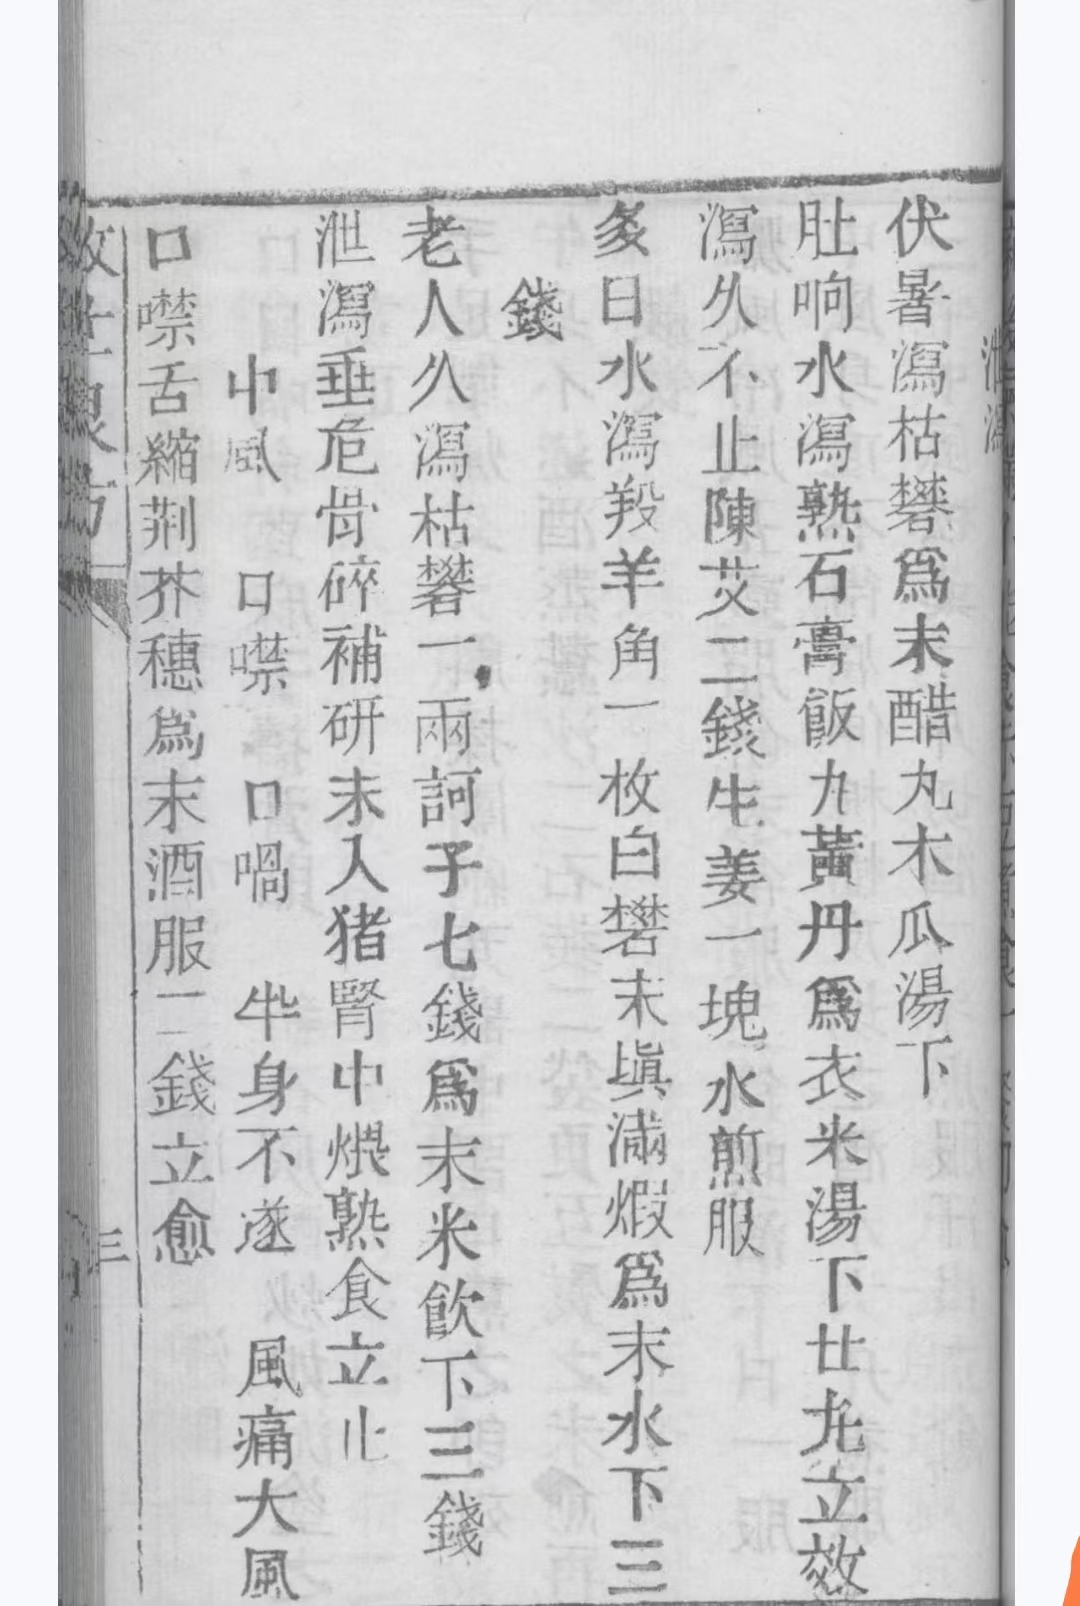 泄瀉
伏暑瀉枯礬爲末醋丸木瓜湯下
肚响水瀉熟石膏飯丸黃丹爲衣米湯下廿丸立效
瀉久不止陳艾二錢生姜一塊水煎服
多日水瀉羖羊角一枚白礬末塡滿煆爲末水下三
錢
老人久瀉枯礬一兩訶子七錢爲末米飮下三錢
泄瀉垂危骨碎補研末入猪腎中煨熟食立止
中風 口噤 口喎 半身不遂 風痛大風
口噤舌縮荆芥穗爲末酒服二錢立愈
三